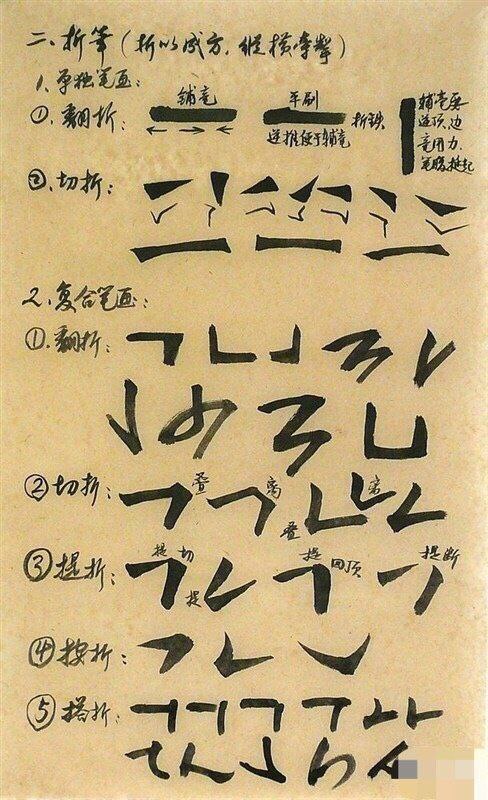 二、折笔(折以成方,纵横牵掣)
1.单独笔画:
①.翻折: 铺毫 平刷 折铁
送推便于铺毫
铺毫要
送顶,边
竟用力,
笔腹挺起
②.切折:
2.复合笔画:
①.翻折:
②切折: 叠 离 叠 离
③提折: 提 切 提 提 回顶 提断
④按折:
⑤搭折: